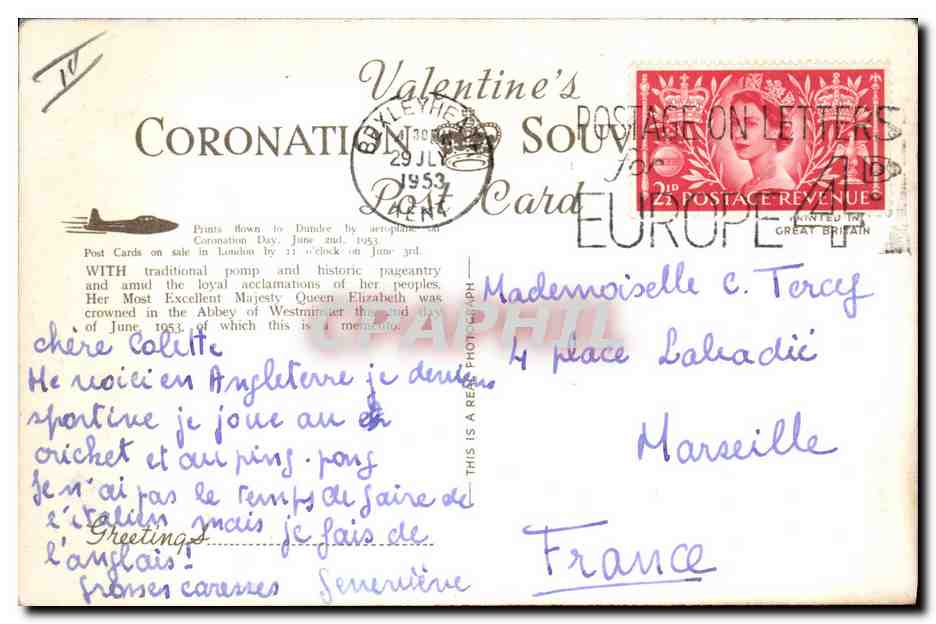 IV
Valentine's
CORONATION SOUV
Post Card
BEXLEYHEA
4 30 PM
29 JLY
1953
KENT
POSTAGE ON LETTERS
for
EUROPE 4D
2½D POSTAGE REVENUE
PRINTED IN
GREAT BRITAIN
Prints flown to Dundee by aeroplane on
Coronation Day, June 2nd, 1953.
Post Cards on sale in London by 11 o'clock on June 3rd.
WITH traditional pomp and historic pageantry
and amid the loyal acclamations of her peoples,
Her Most Excellent Majesty Queen Elizabeth was
crowned in the Abbey of Westminster this 2nd day
of June, 1953, of which this is a memento.
CPAPHIL
THIS IS A REAL PHOTOGRAPH
Mademoiselle C. Tercey
4 place Labadié
Marseille
France
chère Colette
Me voici en Angleterre je deviens
sportive je joue au
cricket et au ping-pong
Je n'ai pas le temps de faire de
l'italien mais je fais de
Greetings
l'anglais!
Grosses caresses Geneviève